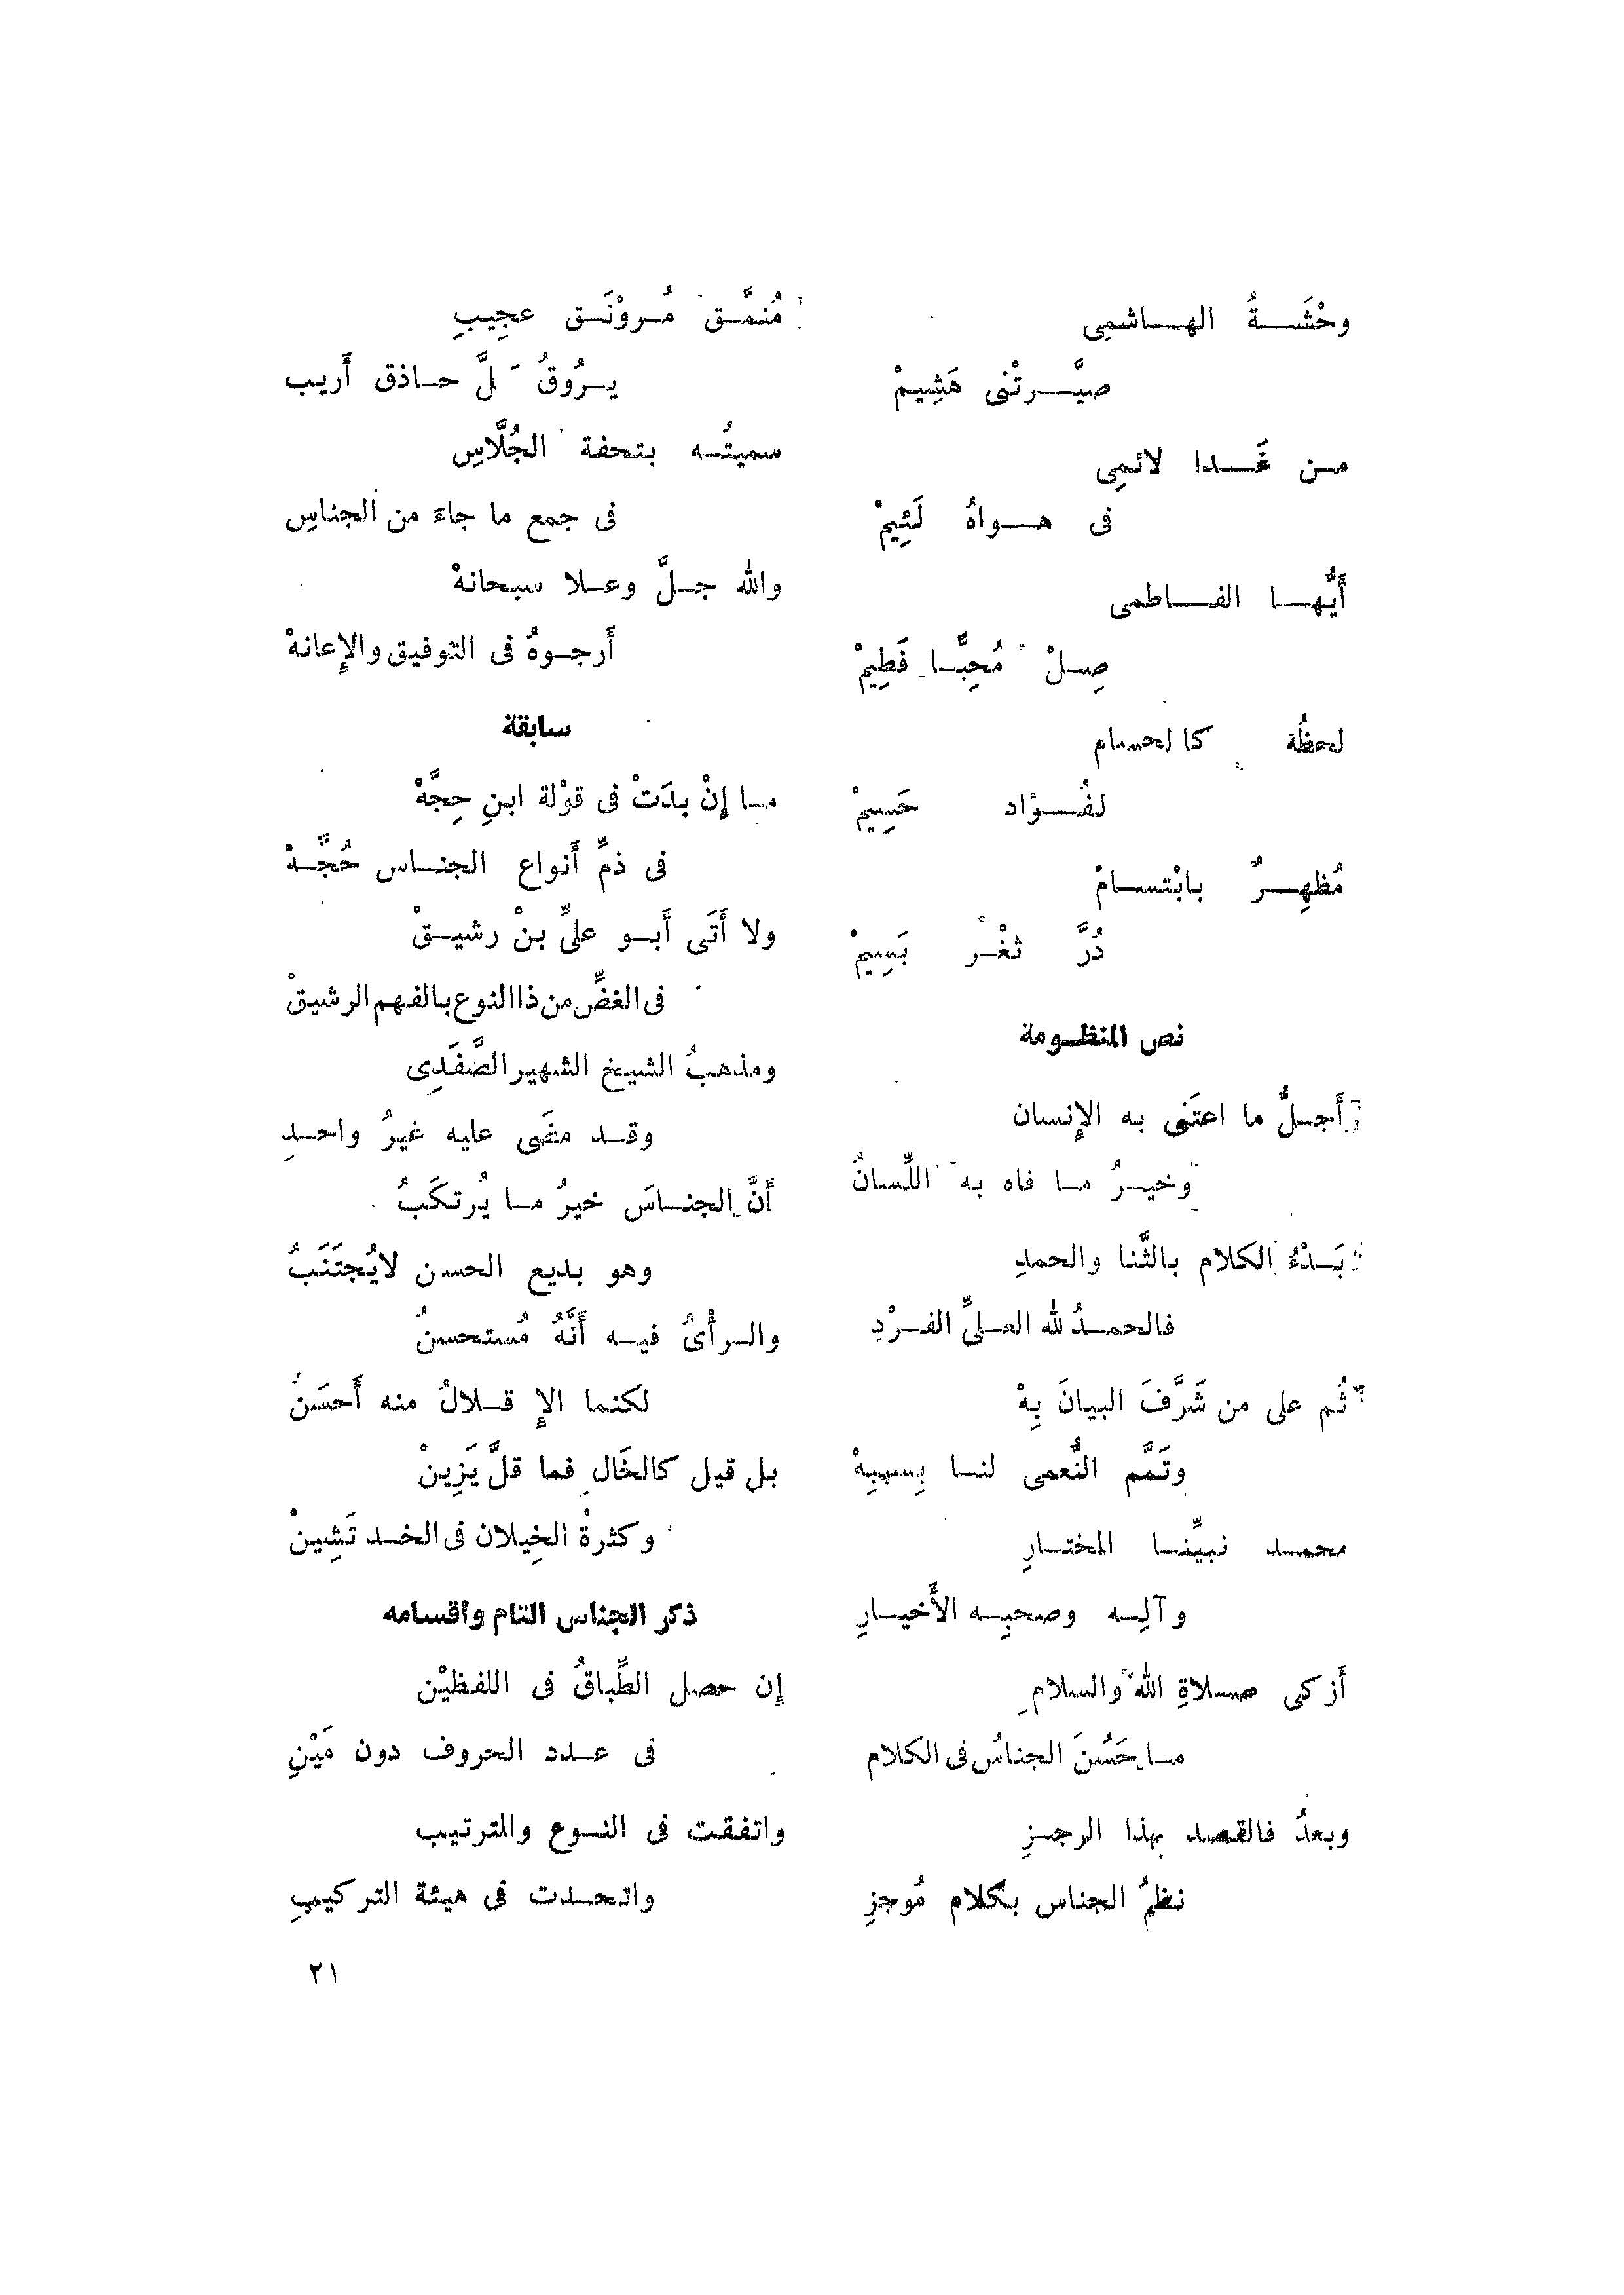 وحْشَـةُ الهـاشمِى
صيَّـرتْنى هَشِيمْ
مـن غَـدا لائمِى
فى هـواهُ لَئِيمْ
أَيُّهـا الفـاطمى
صِـلْ مُحِبًّـا فَطِيمْ
لحظُه كالحسام
لفُـؤاد حَسِيمْ
مُظهِـرٌ بابْتسـامْ
دُرَّ ثغْـر بَسِيمْ
نص المنظـومة
أَجـلُّ ما اعتَنى به الإِنسان
وخيـرُ مـا فاه به اللِّسانُ
بَـدْءُ الكلام بالثَّنا والحمدِ
فالحمـدُ لله العـلىِّ الفـرْدِ
ثُم على من شَرَّفَ البيانَ بِهْ
وتَمَّم النُّعمى لنـا بِسببِهْ
محمـد نبيِّنـا المختـارِ
وآلِـه وصحبِـه الأَخيـارِ
أَزكى صـلاةِ الله والسلام
مـا حَسُنَ الجناسُ فى الكلام
وبعدُ فالقصد بهذا الرجـزِ
نظمُ الجناس بكلام مُوجزِ
مُنمَّـق مُـروْنَـق عجِيبِ
يـرُوقُ لَّ حـاذق أَريب
سميتُـه بتحفة الجُلَّاسِ
فى جمع ما جاءَ من الجناسِ
والله جـلَّ وعـلا سبحانهْ
أَرجـوهُ فى التوفيق والإِعانهْ
سابقة
مـا إِنْ بدَتْ فى قوْلة ابنِ حِجَّهْ
فى ذمِّ أَنواع الجنـاس حُجَّـهْ
ولا أَتَى أَبـو علىِّ بنْ رشيـقْ
فى الغضِّ من ذا النوع بالفهم الرشيقْ
ومذهبُ الشيخ الشهير الصَّفَدِى
وقـد مضَى عليه غيرُ واحـدِ
أَنَّ الجنـاسَ خيرُ مـا يُرتكَبُ
وهو بديع الحسن لايُجتَنَبُ
والـرأْىُ فيـه أَنَّهُ مُستحسنُ
لكنما الإِ قـلالُ منه أَحسَنُ
بل قيل كالخَال فما قلَّ يَزِينْ
وكثرةُ الخِيلان فى الخـد تَشِينْ
ذكر الجناس التام واقسامه
إِن حصل الطِّباقُ فى اللفظيْن
فى عـدد الحروف دون مَيْنِ
واتفقت فى النـوع والترتيب
واتحـدت فى هيئة التركيبِ
٢١